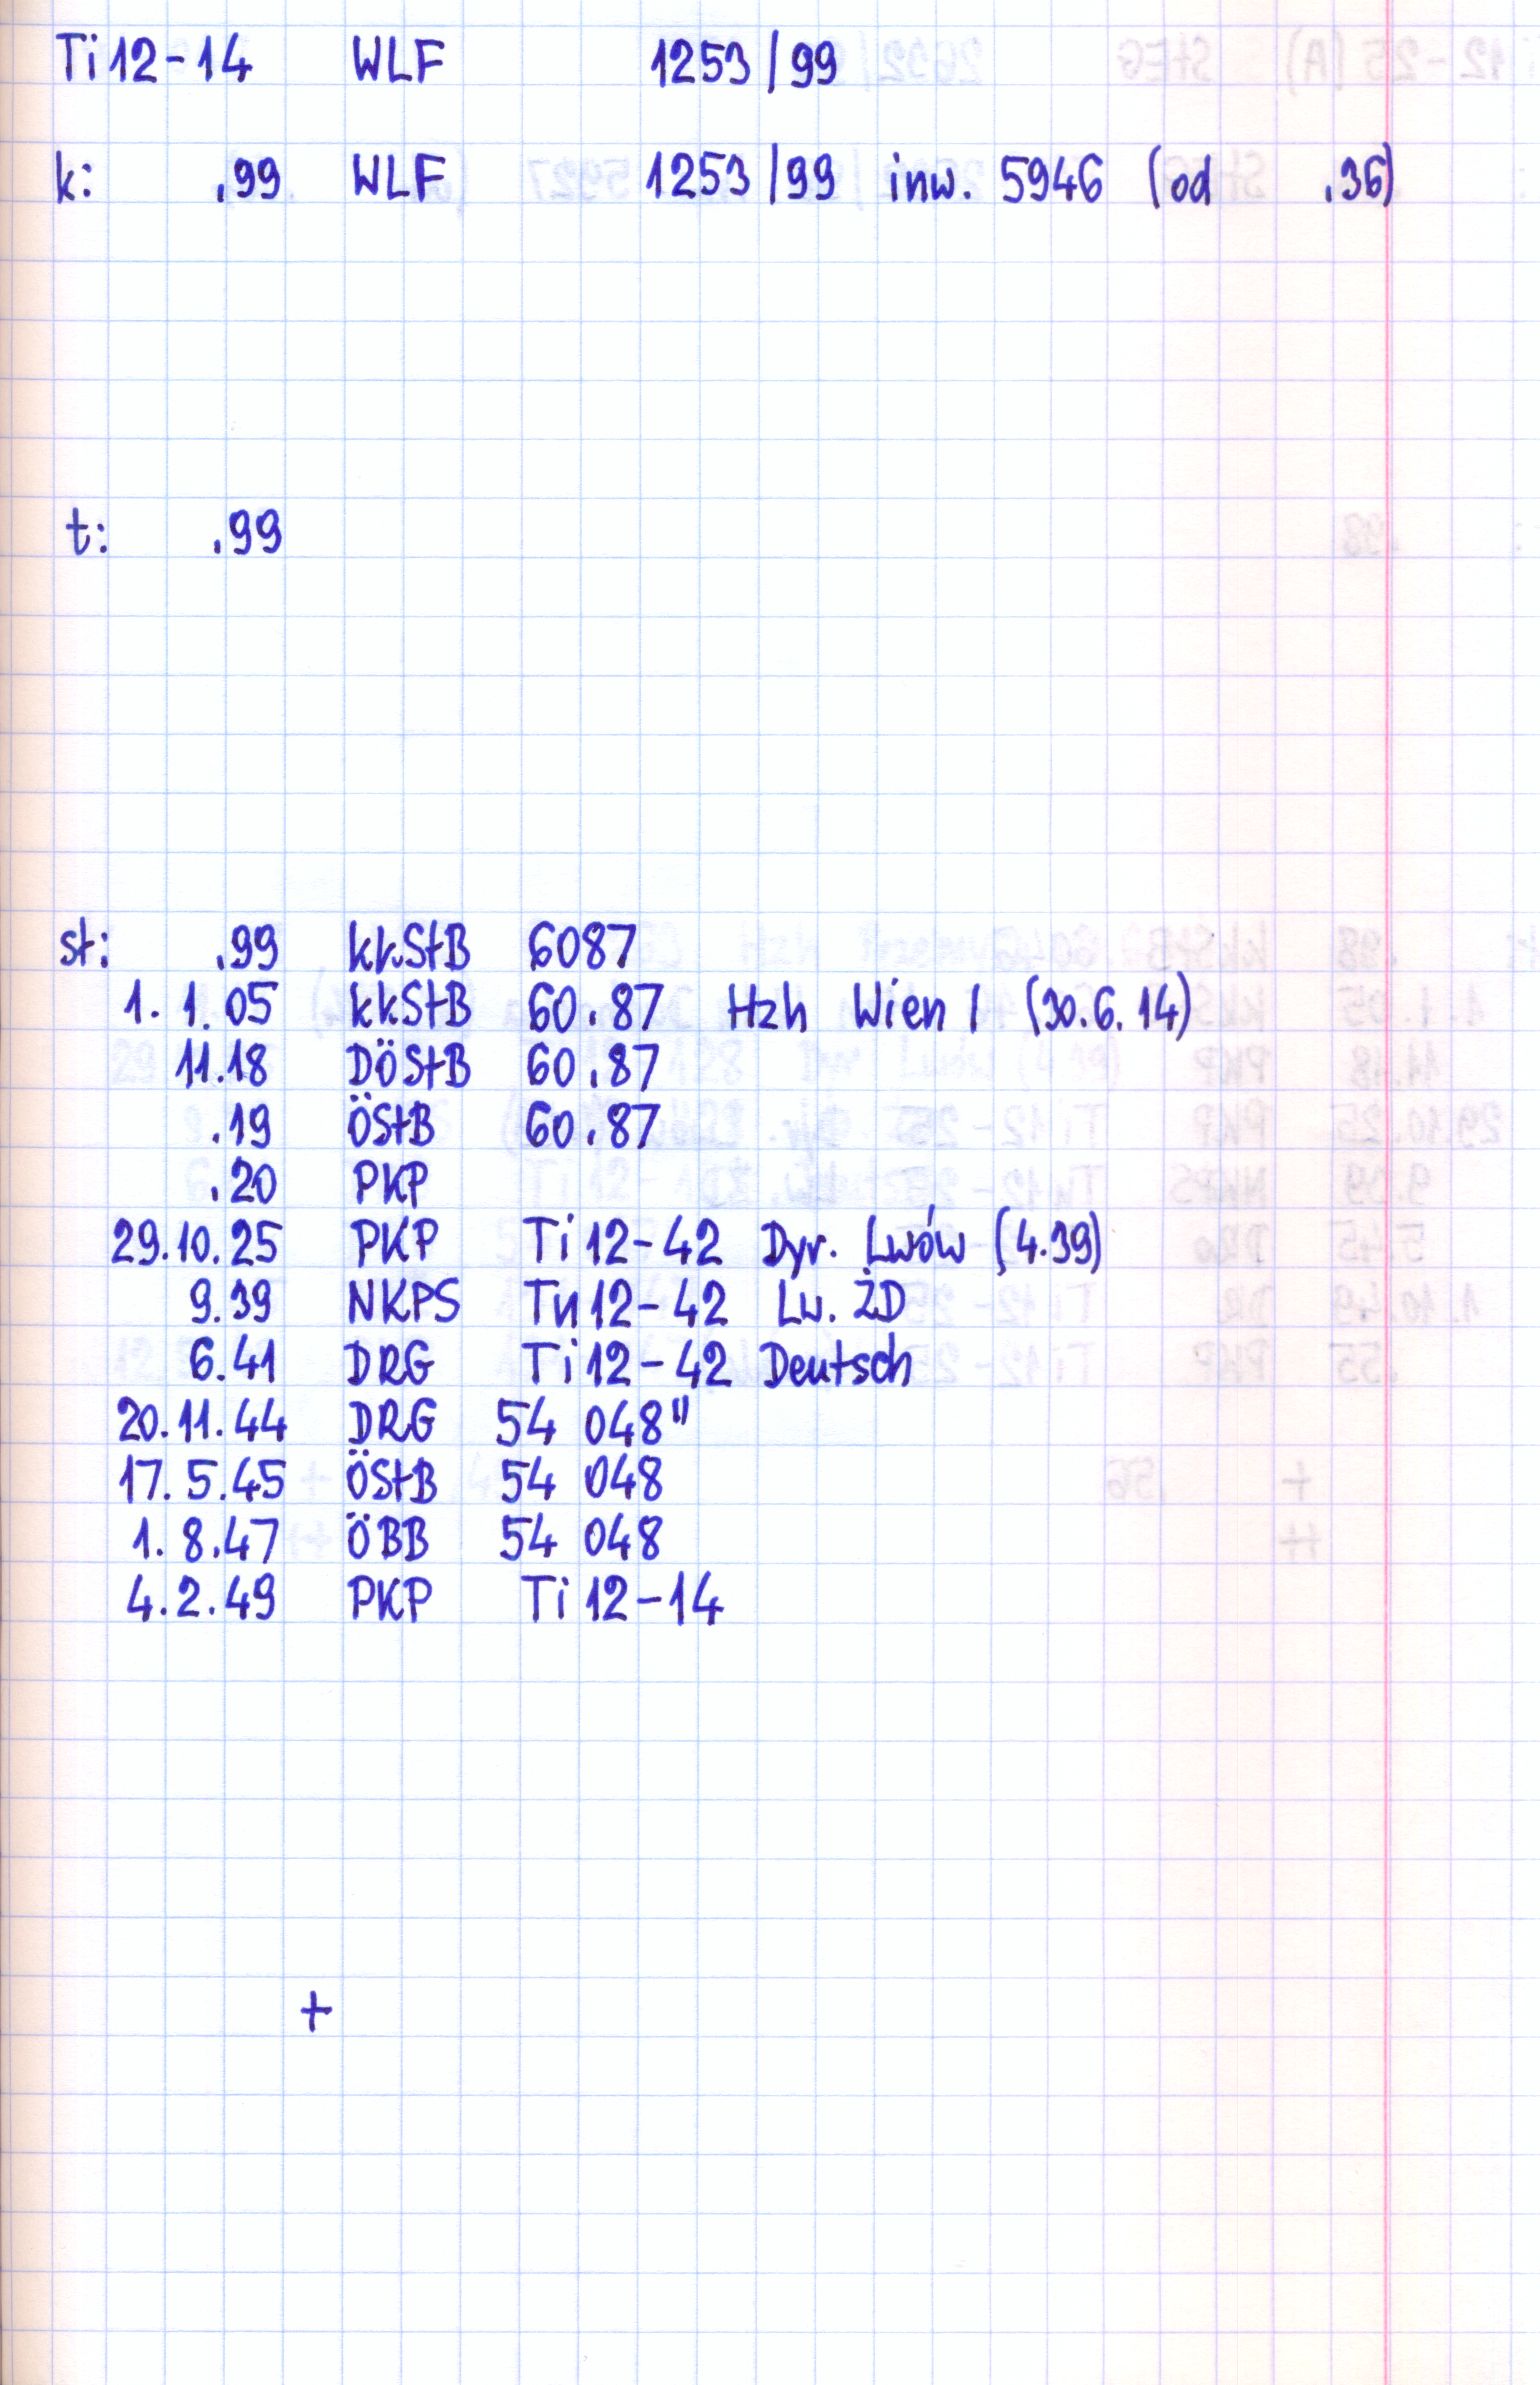 Ti 12-14 WLF 1253/99
k: .99 WLF 1253/99 inw. 5946 (od .36)
t: .99
st: .99 kkStB 6087
1. 1. 05 kkStB 60.87 Hzh Wien I (30.6.14)
11.18 DÖStB 60.87
.19 ÖStB 60.87
.20 PKP
29.10.25 PKP Ti 12-42 Dyr. Lwów (4.39)
9.39 NKPS Ti 12-42 Lw. ŻD
6.41 DRG Ti 12-42 Deutsch
20.11.44 DRG 54 048"
17. 5.45 ÖStB 54 048
1. 8.47 ÖBB 54 048
4.2.49 PKP Ti 12-14
+